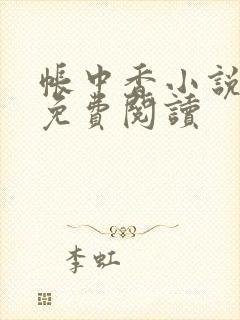 帳中香小說
免費閱讀
李虹